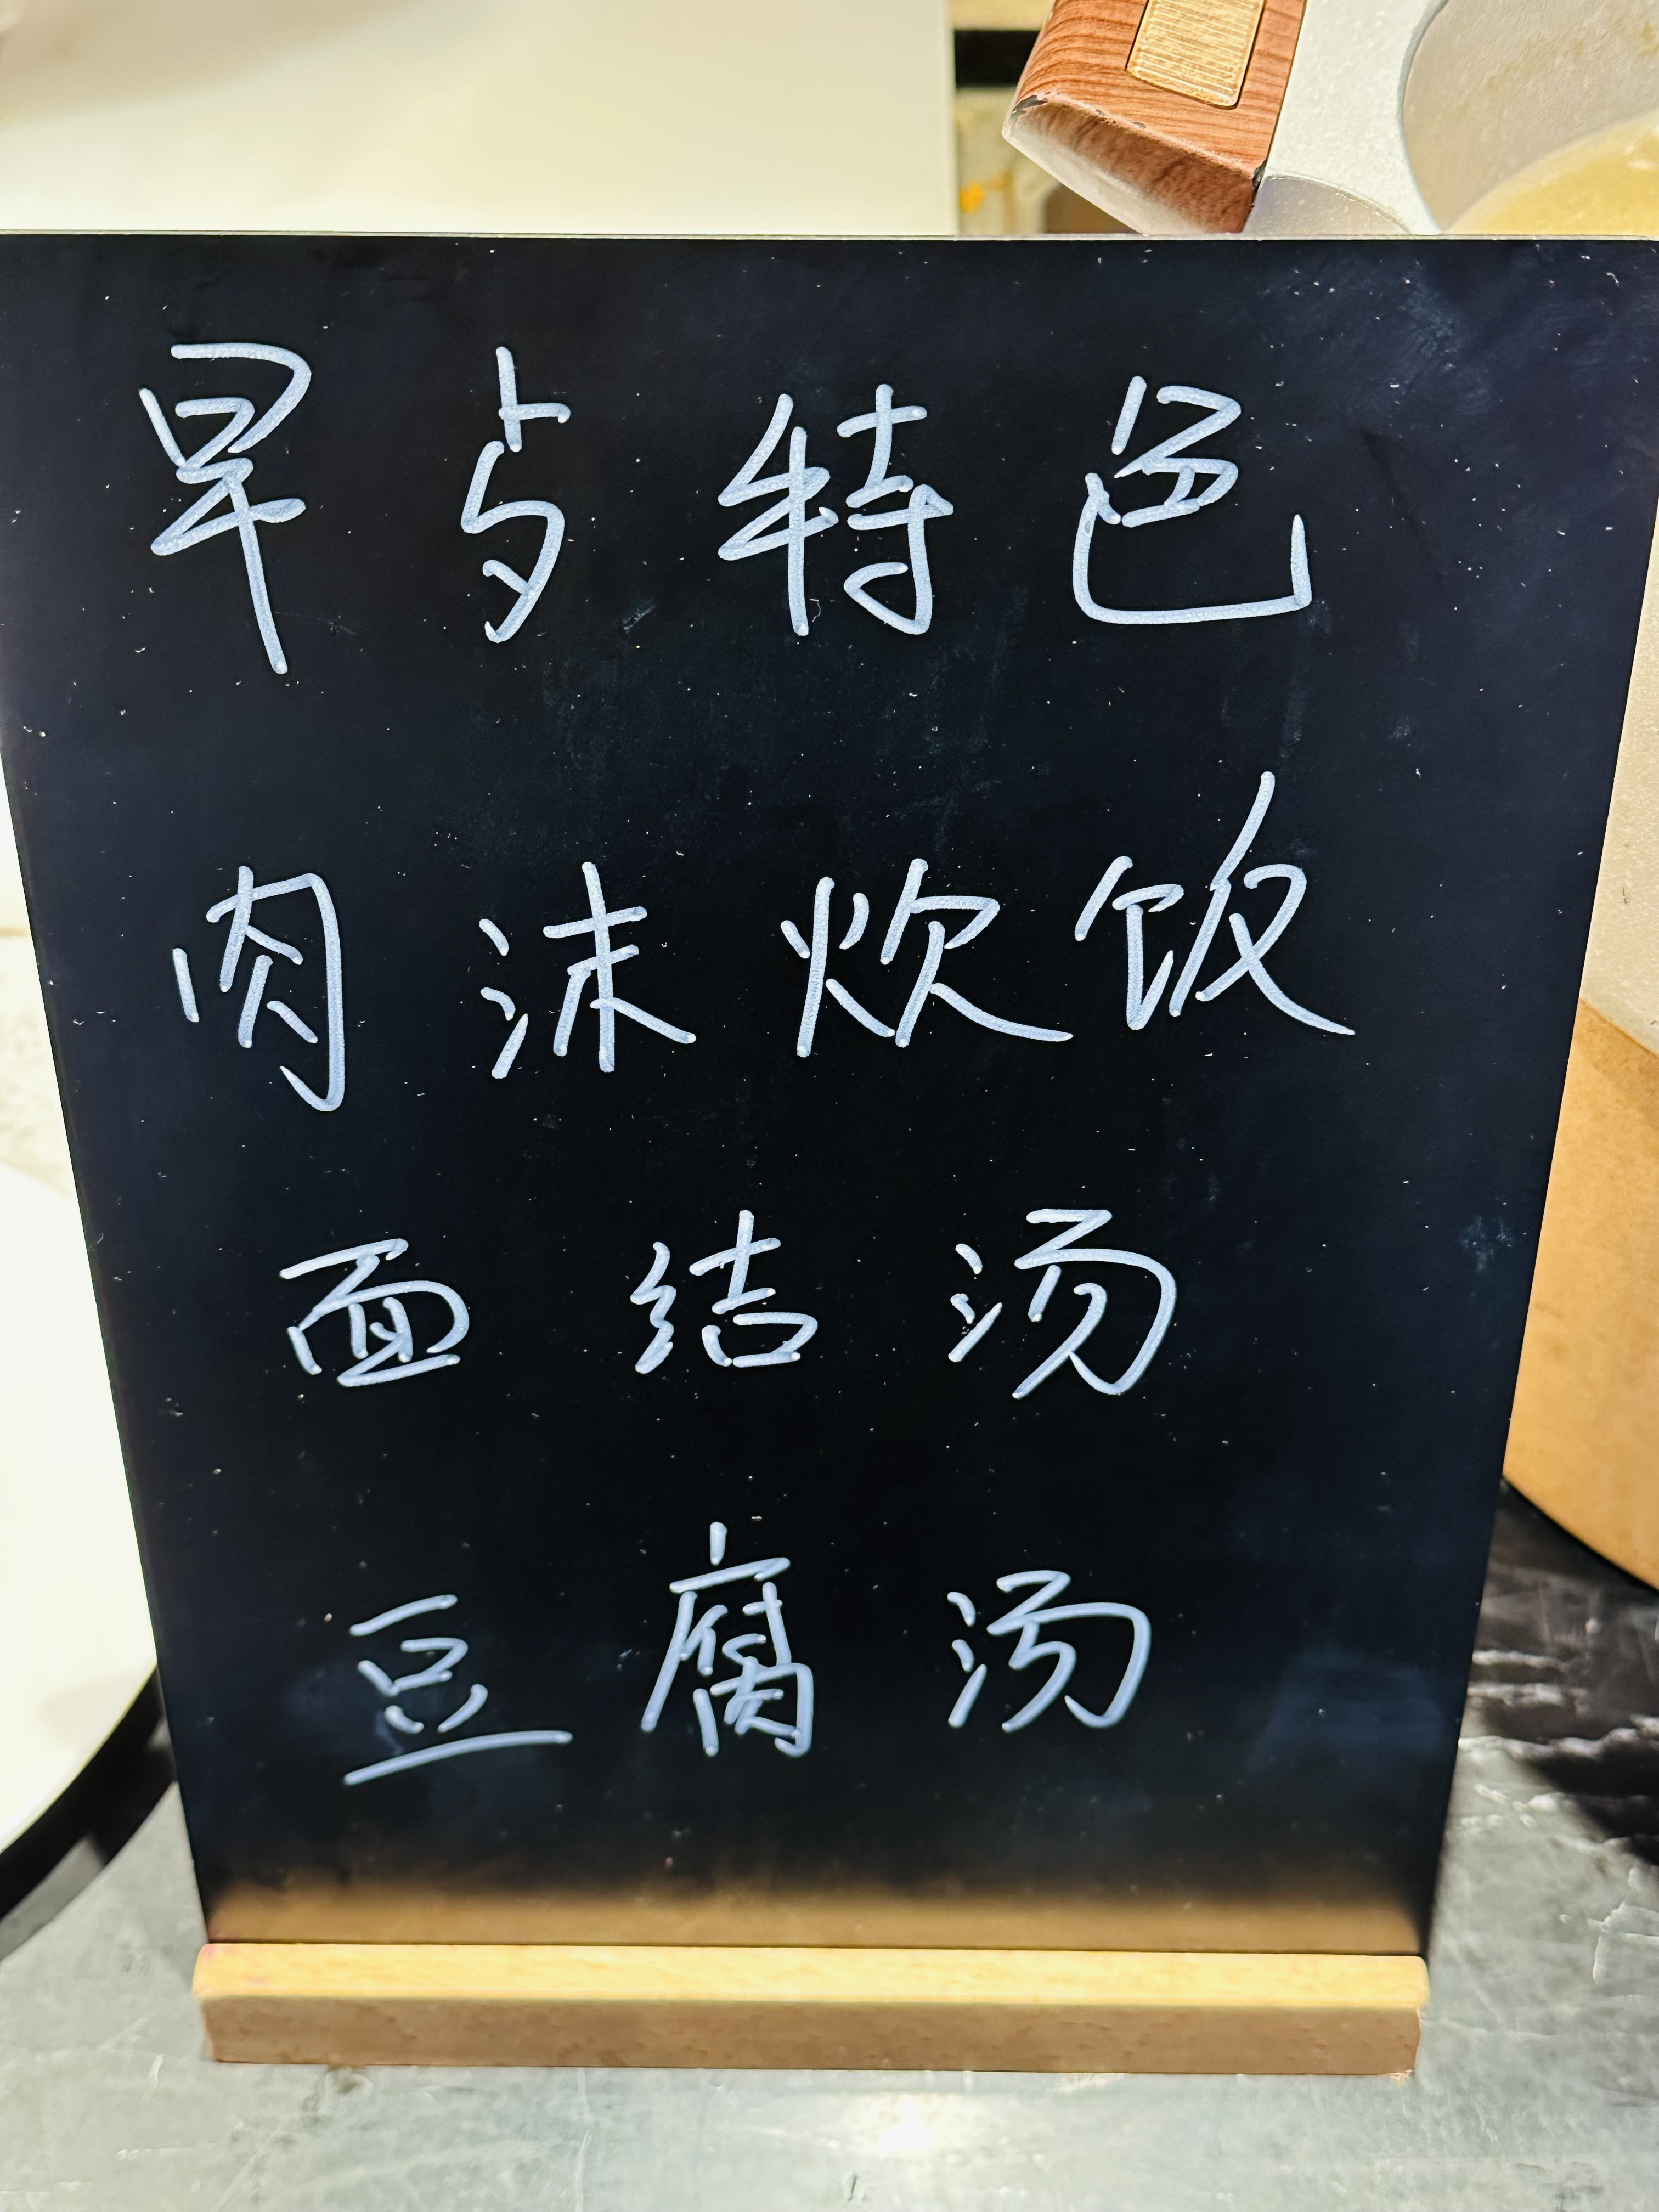 早点特色
肉沫炊饭
面结汤
豆腐汤